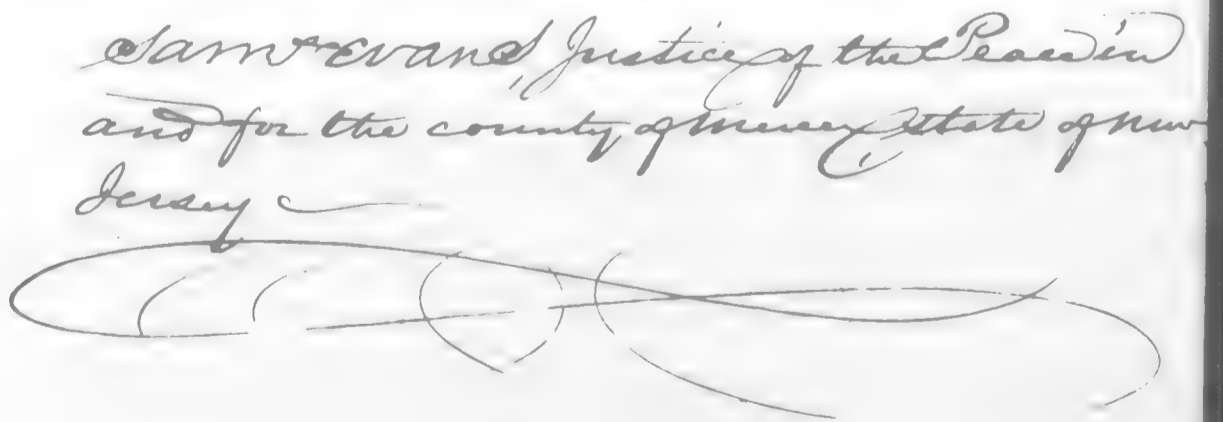 Saml Evans, Justice of the Peace in
and for the county of Mercer, state of New
Jersey